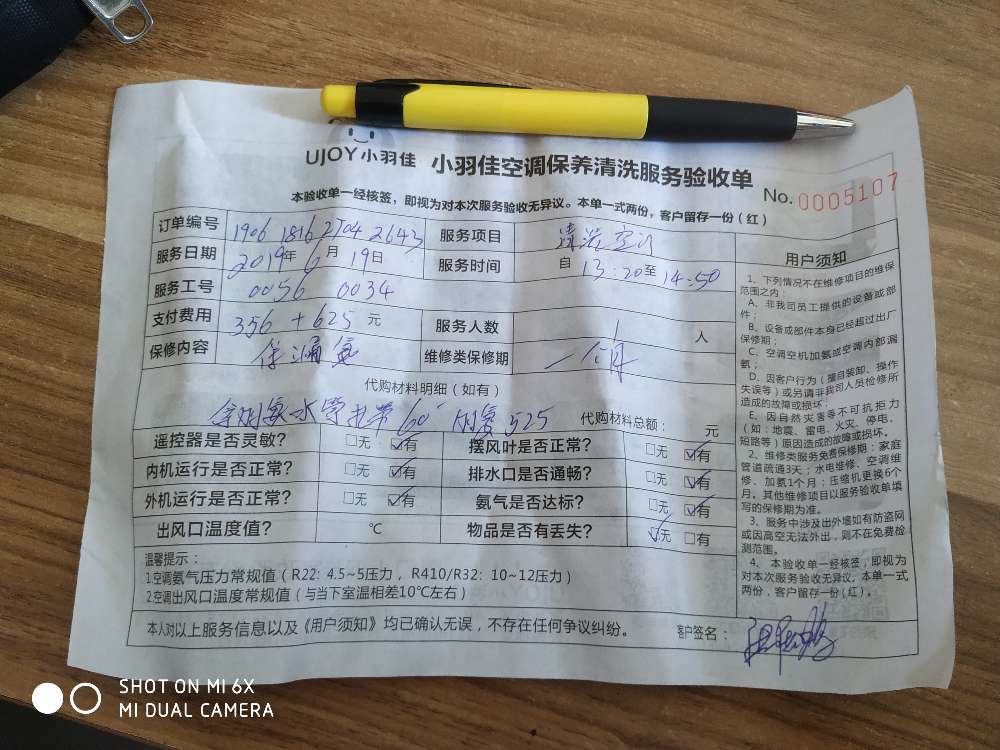 UJOY小羽佳 小羽佳空调保养清洗服务验收单
No. 0005107
本验收单一经核签，即视为对本次服务验收无异议。本单一式两份，客户留存一份（红）
订单编号 1906 1816 2704 2643 服务项目 清洗空调
服务日期 2019年6月19日 服务时间 自13:20至14:50
服务工号 0056 0034
支付费用 356+625 元 服务人数 1 人
保修内容 维修类保修期 一个月
代购材料明细（如有）
水管扎带60 525 代购材料总额： 元
遥控器是否灵敏？ □无 ☑有 摆风叶是否正常？ □无 ☑有
内机运行是否正常？ □无 ☑有 排水口是否通畅？ □无 ☑有
外机运行是否正常？ □无 ☑有 氨气是否达标？ □无 ☑有
出风口温度值？ ℃ 物品是否有丢失？ ☑无 □有
温馨提示：
1.空调氨气压力常规值（R22: 4.5~5压力，R410/R32: 10~12压力）
2.空调出风口温度常规值（与当下室温相差10℃左右）
本人对以上服务信息以及《用户须知》均已确认无误，不存在任何争议纠纷。 客户签名：
用户须知
1、下列情况不在维修项目的维保
范围之内：
A、非我司员工提供的设备或部
件；
B、设备或部件本身已经超过出厂
保修期；
C、空调空机加氨或空调内部漏
氨；
D、因客户行为（擅自装卸、操作
失误等）或另请非我司人员检修所
造成的故障或损坏；
E、因自然灾害等不可抗拒力
（如：地震、雷电、火灾、停电、
短路等）原因造成的故障或损坏。
2、维修类服务免费保修期：家庭
管道疏通3天；水电维修、空调维
修、加氨1个月；压缩机更换6个
月。其他维修项目以服务验收单填
写的保修期为准。
3、服务中涉及出外墙如有防盗网
或因高空无法外出，则不在免费检
测范围。
4、本验收单一经核签，即视为
对本次服务验收无异议。本单一式
两份，客户留存一份（红）。
SHOT ON MI 6X
MI DUAL CAMERA